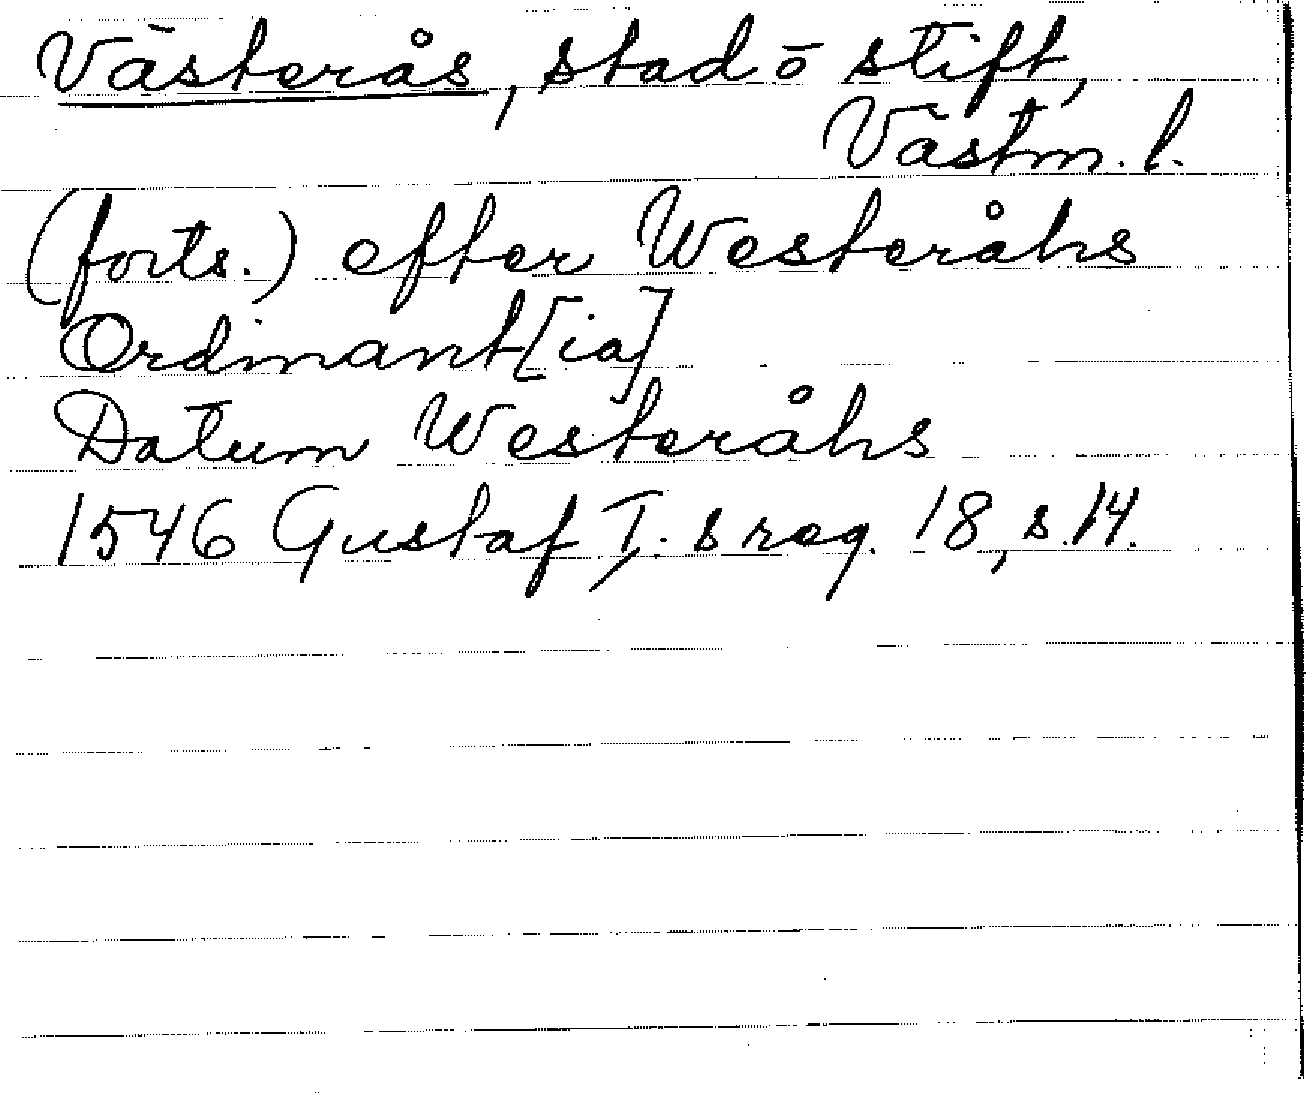 Västerås, stad ō stift,
Västm. l.
(forts.) efter Westeråhs
Ordinant[ia]
Datum Westeråhs
1546 Gustaf I:s reg. 18, s. 14.